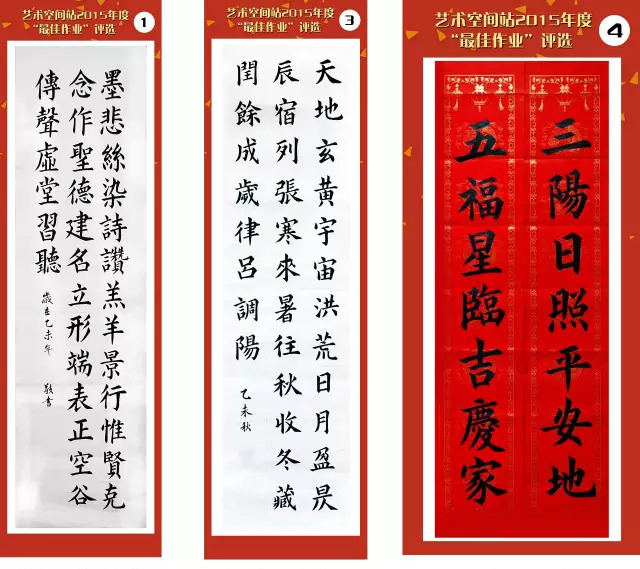 艺术空间站2015年度
“最佳作业”评选
1
墨悲絲染詩讚羔羊景行惟賢克
念作聖德建名立形端表正空谷
傳聲虛堂習聽
歲在乙未年 敬書
艺术空间站2015年度
“最佳作业”评选
3
天地玄黃宇宙洪荒日月盈昃
辰宿列張寒來暑往秋收冬藏
閏餘成歲律呂調陽
乙未秋
艺术空间站2015年度
“最佳作业”评选
4
三陽日照平安地
五福星臨吉慶家